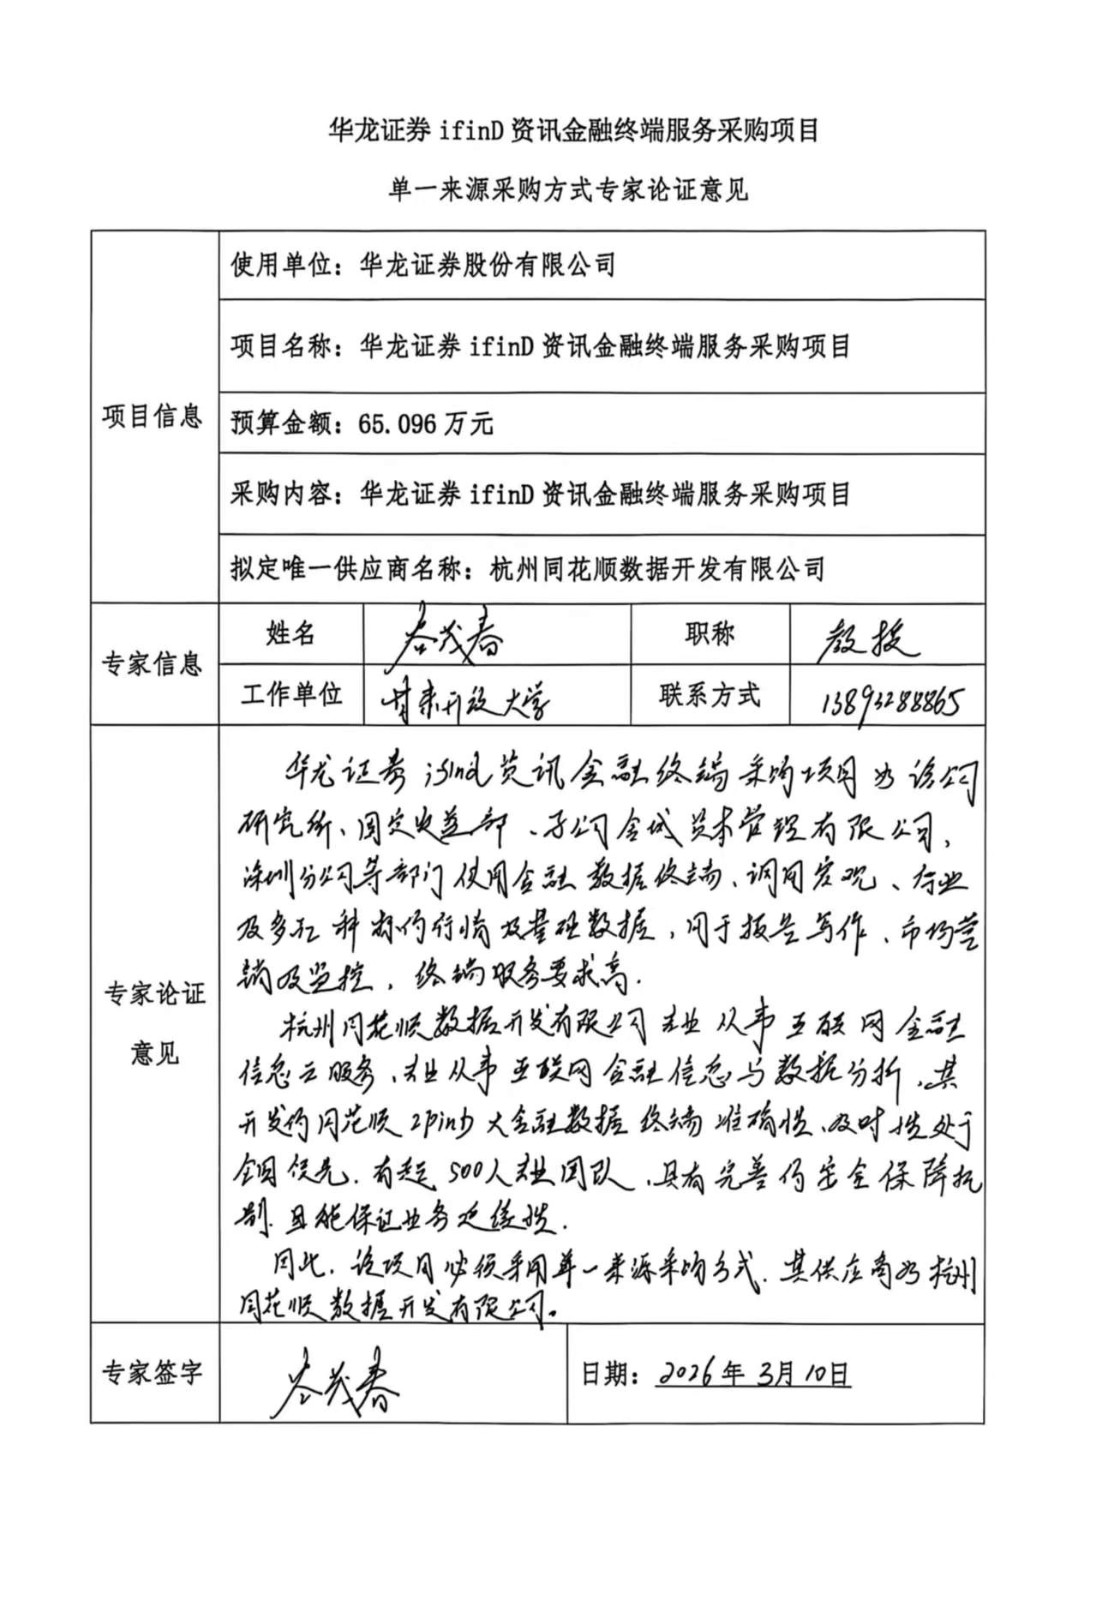 华龙证券 ifinD 资讯金融终端服务采购项目
单一来源采购方式专家论证意见
项目信息
使用单位：华龙证券股份有限公司
项目名称：华龙证券 ifinD 资讯金融终端服务采购项目
预算金额：65.096 万元
采购内容：华龙证券 ifinD 资讯金融终端服务采购项目
拟定唯一供应商名称：杭州同花顺数据开发有限公司
专家信息
姓名
茂春
职称
教授
工作单位
甘肃开放大学
联系方式
13893288865
专家论证
意见
华龙证券 ifind 资讯金融终端采购项目为该公司
研究所、固定收益部、子公司金城资本管理有限公司，
深圳分公司等部门使用金融数据终端、调用宏观、行业
及多 种标的行情及基础数据，用于报告写作、市场营
销及监控，终端服务要求高.
杭州同花顺数据开发有限公司专业从事互联网金融
信息云服务，专业从事互联网金融信息与数据分析，其
开发的同花顺 ifinD 大金融数据终端准确性、及时性处于
全国领先. 有超500人专业团队，具有完善的安全保障机
制. 且能保证业务连续性.
因此，该项目必须采用单一来源采购方式. 其供应商为杭州
同花顺数据开发有限公司。
专家签字
茂春
日期：2026年3月10日